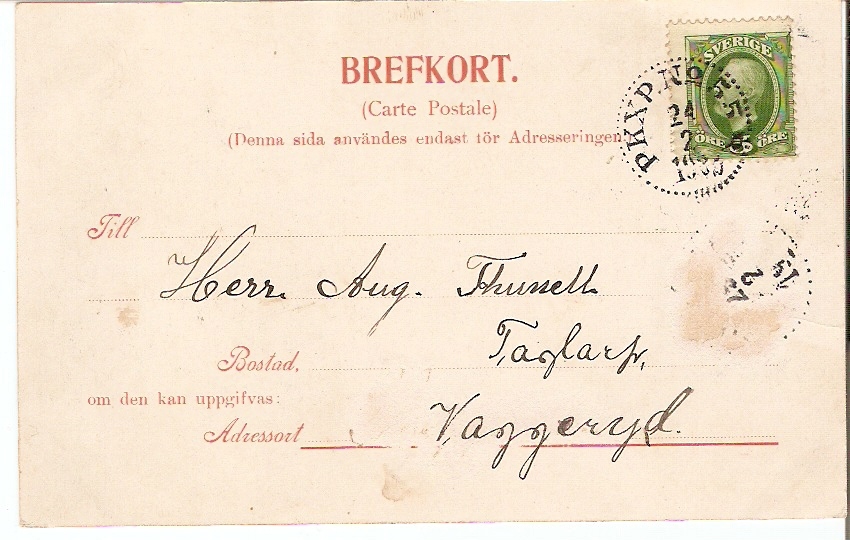 BREFKORT.
(Carte Postale)
(Denna sida användes endast för Adresseringen
SVERIGE
5
ÖRE 5 ÖRE
PKXP.No
24
2
Till
Herr. Aug. Thunell
Taglarp,
Bostad,
om den kan uppgifvas:
Vaggeryd.
Adressort